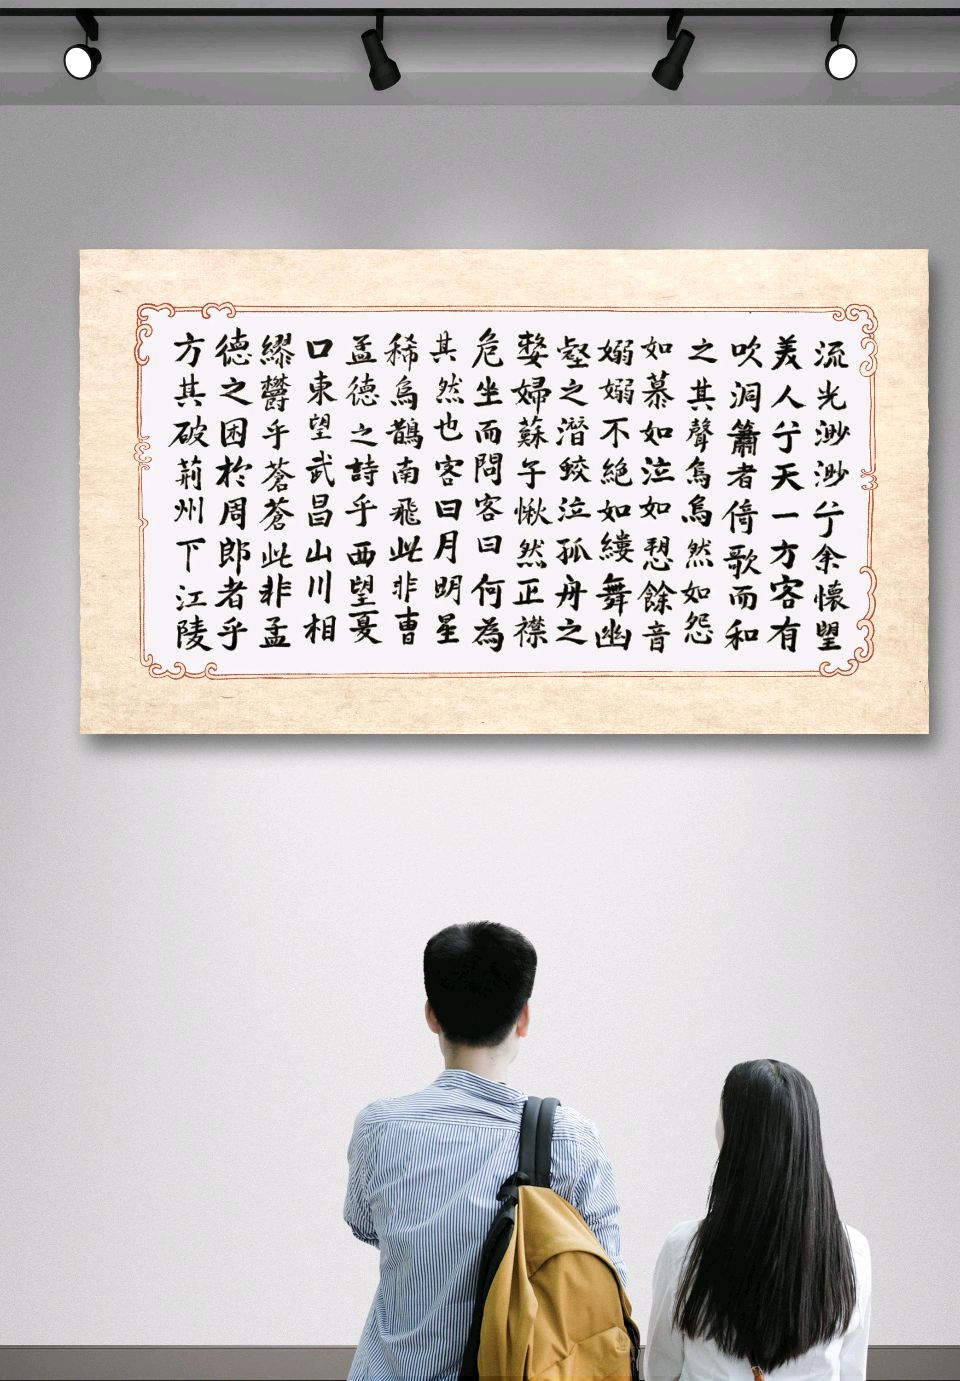 流光渺渺兮余懷望
美人兮天一方客有
吹洞簫者倚歌而和
之其聲烏烏然如怨
如慕如泣如愬餘音
嫋嫋不絕如縷舞幽
壑之潛蛟泣孤舟之
嫠婦蘇子愀然正襟
危坐而問客曰何為
其然也客曰月明星
稀烏鵲南飛此非曹
孟德之詩乎西望夏
口東望武昌山川相
繆鬱乎蒼蒼此非孟
德之困於周郎者乎
方其破荊州下江陵